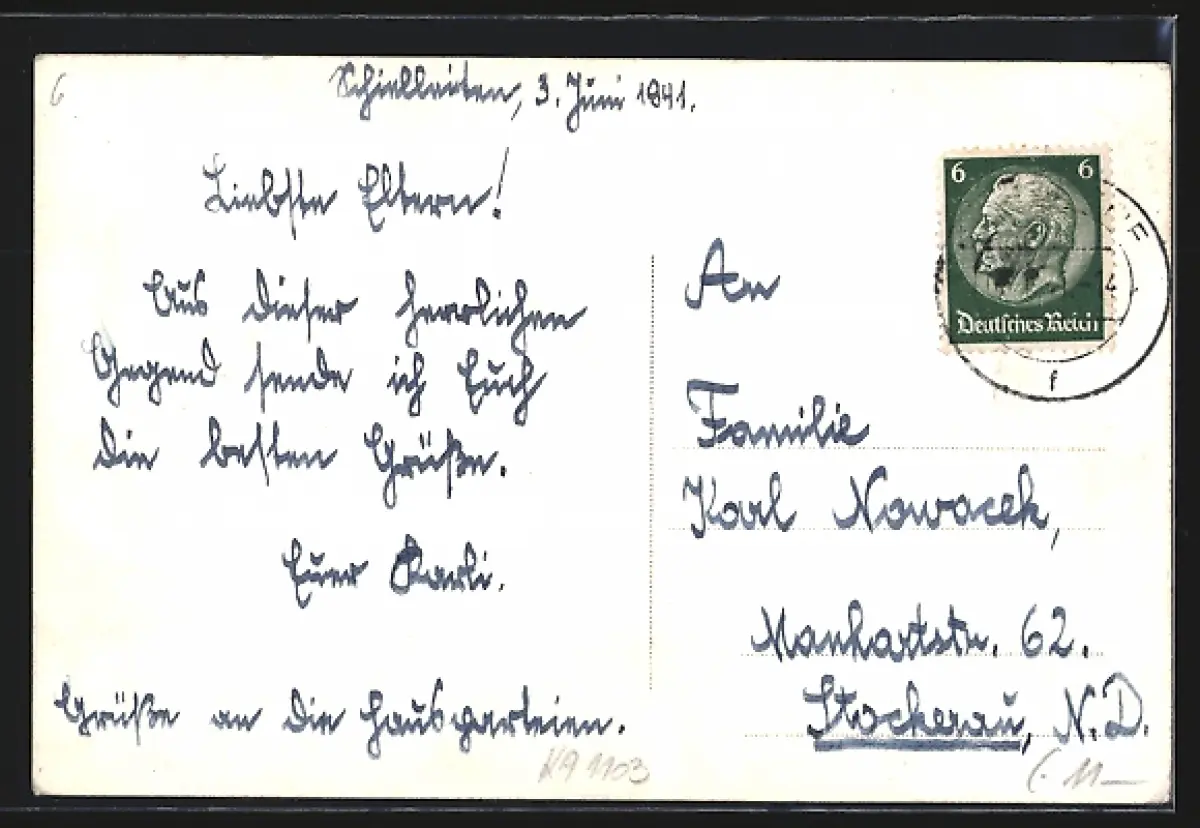 6
Schielleiten, 3. Juni 1941.
Liebste Eltern!
Aus dieser herrlichen
Gegend sende ich Euch
die besten Grüße.
Euer Karli.
Grüße an die Hausparteien.
6 6
Deutsches Reich
f
An
Familie
Karl Nowacek,
Manhartstr. 62.
Stockerau, N.D.